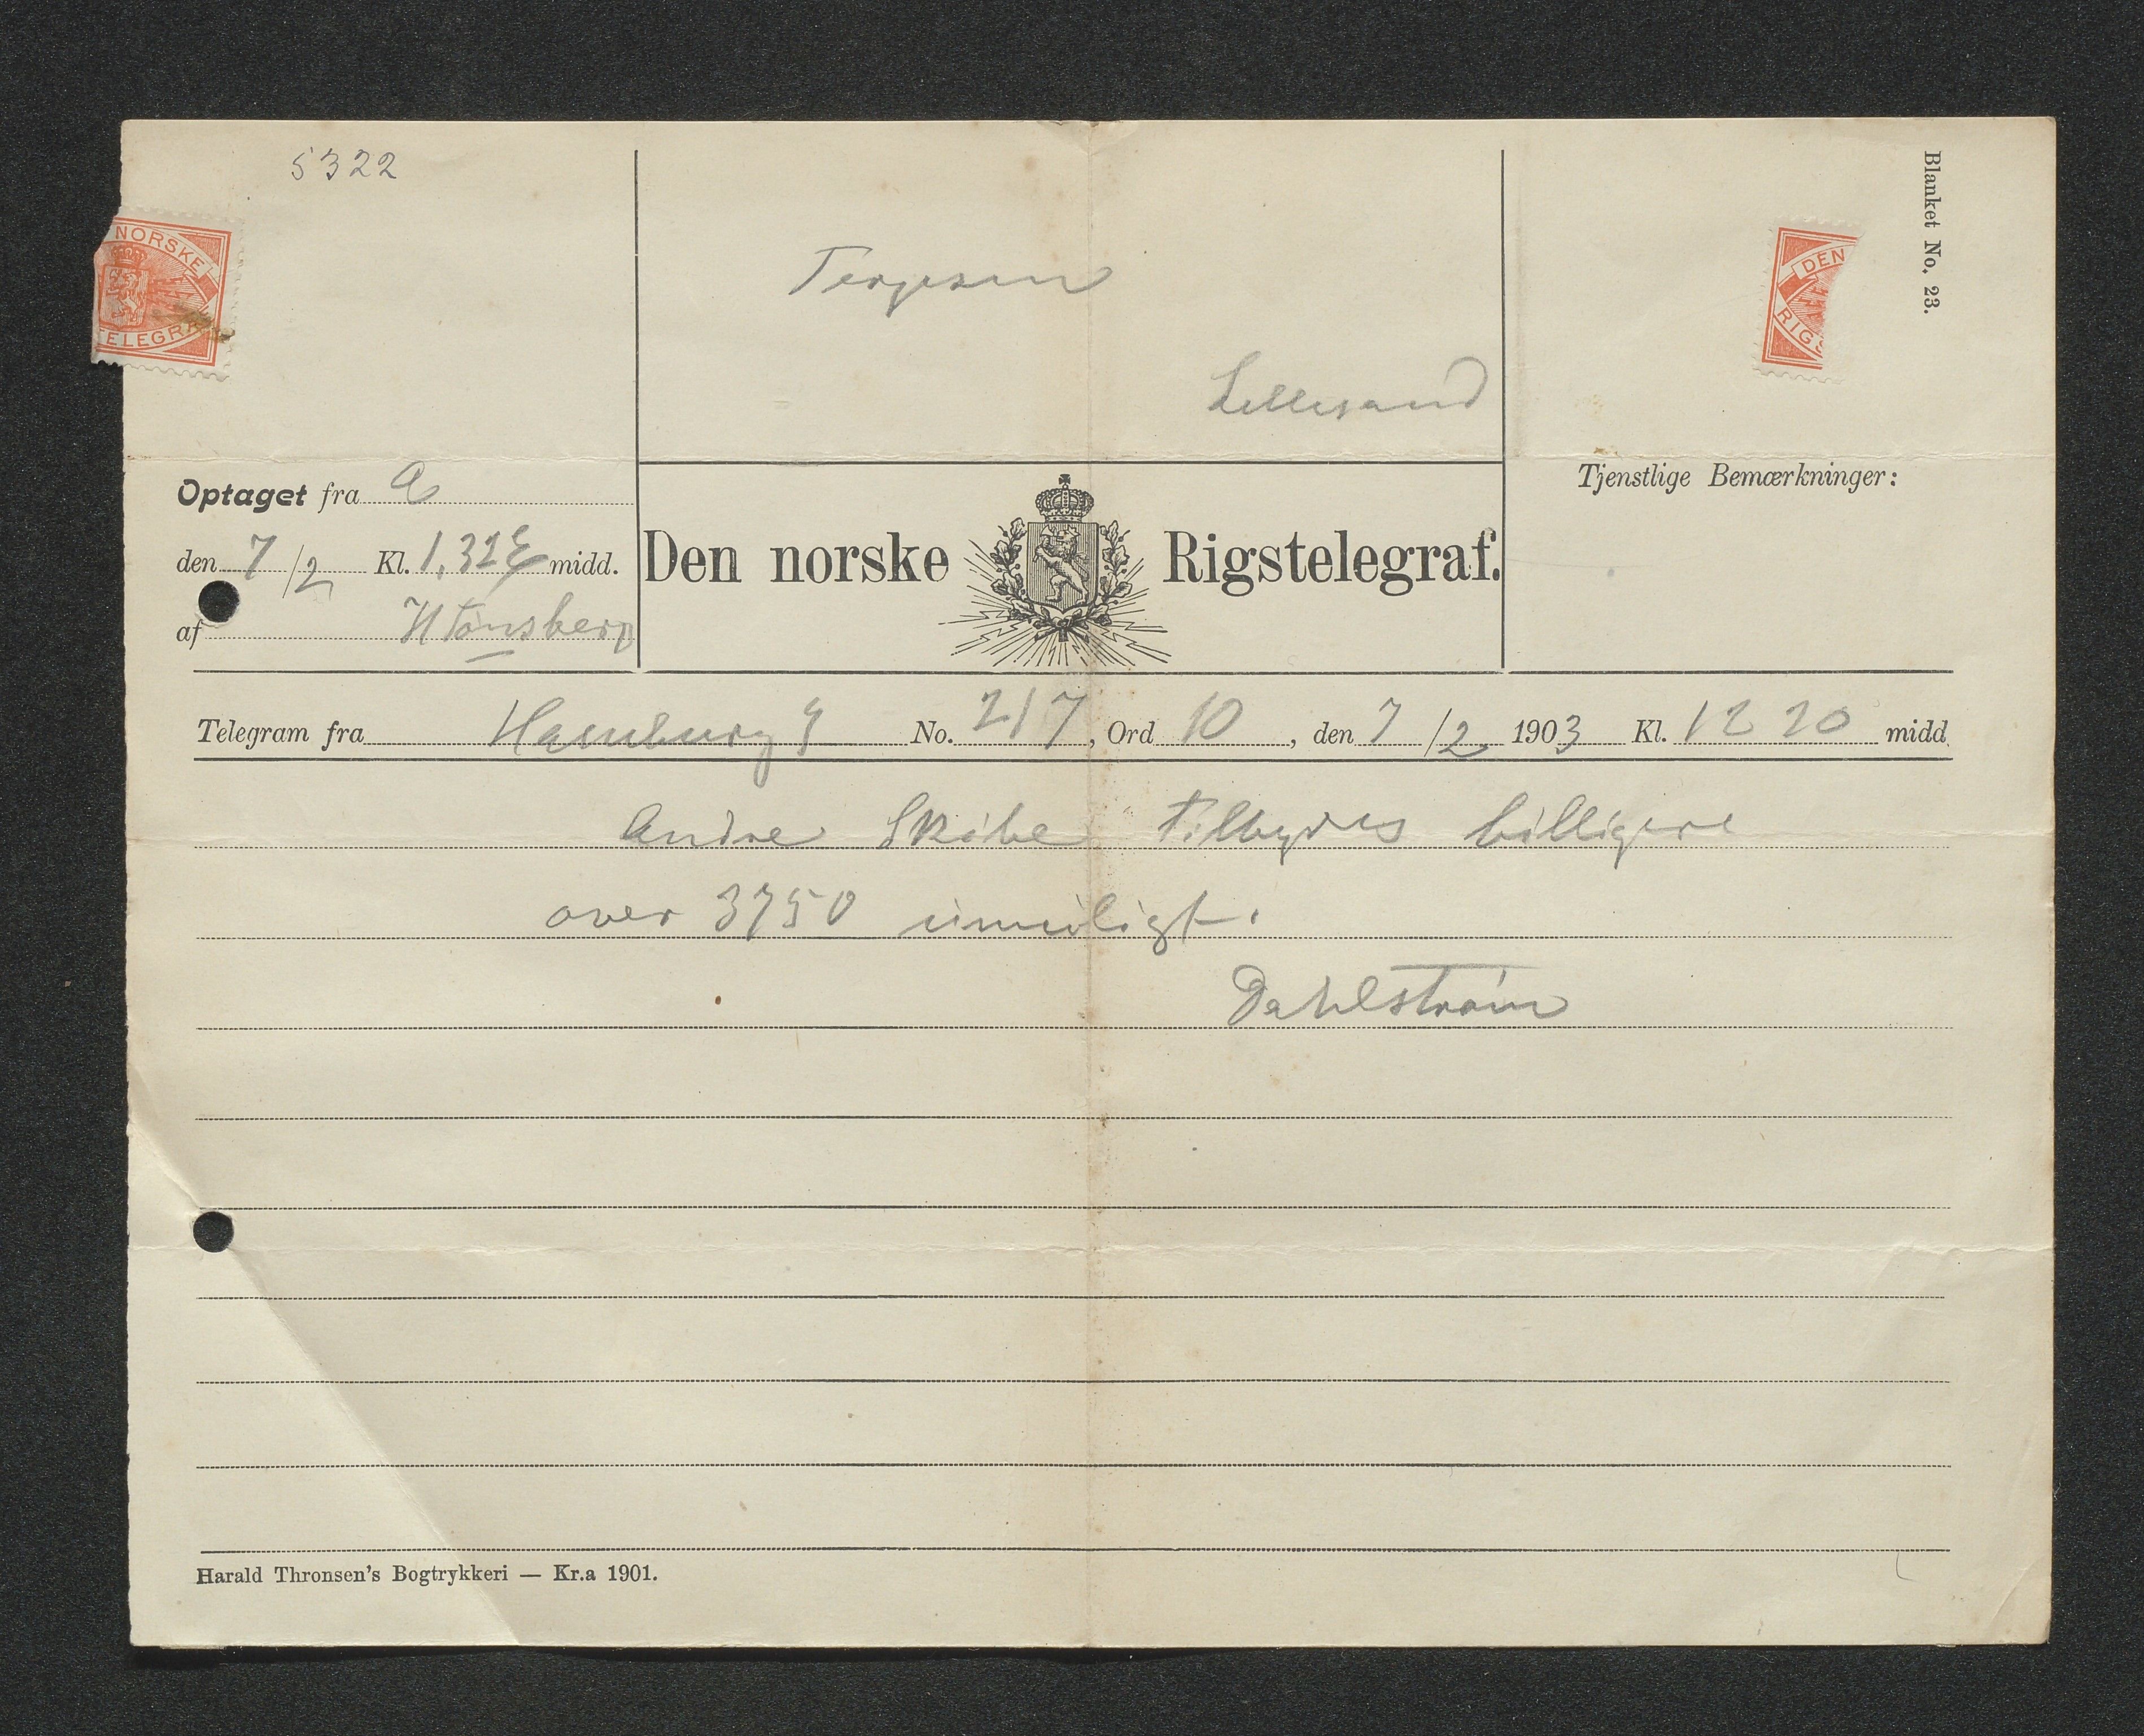 5322
NORSKE
TELEGRA
Terjesen
Lillesand
DEN
RIGS
Blanket No. 23.
Optaget fra a
den 7/2 Kl. 1,32 E midd.
af H Tønsberg
Den norske Rigstelegraf.
Tjenstlige Bemærkninger:
Telegram fra Hamburg No. 217, Ord 10, den 7/2 1903 Kl. 12 20 midd.
Andre Skibe tilbydes billigere
over 3750 umuligt.
Dahlstrøm
Harald Thronsen's Bogtrykkeri — Kr.a 1901.